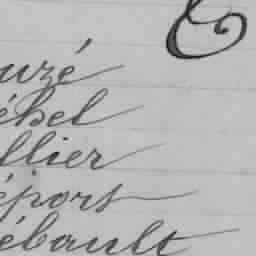 uzé
ébel
llier
éport
ébault